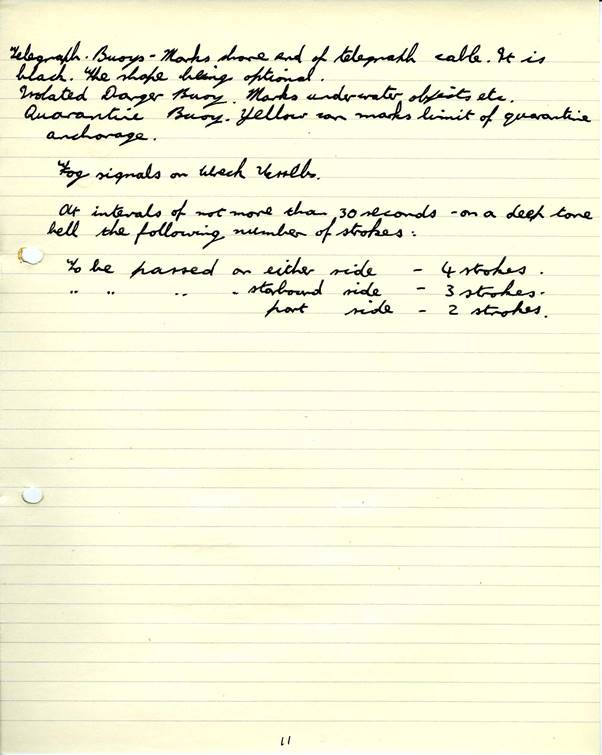 Telegraph. Buoys - Marks shore end of telegraph cable. It is
black. The shape being optional.
Isolated Danger Buoy. Marks underwater objects etc.
Quarantine Buoy. Yellow can marks limit of quarantine
anchorage.
Fog signals on Wreck Vessels.
At intervals of not more than 30 seconds - on a deep tone
bell the following number of strokes:
To be passed on either side - 4 strokes.
" " " " starboard side - 3 strokes.
port side - 2 strokes.
11